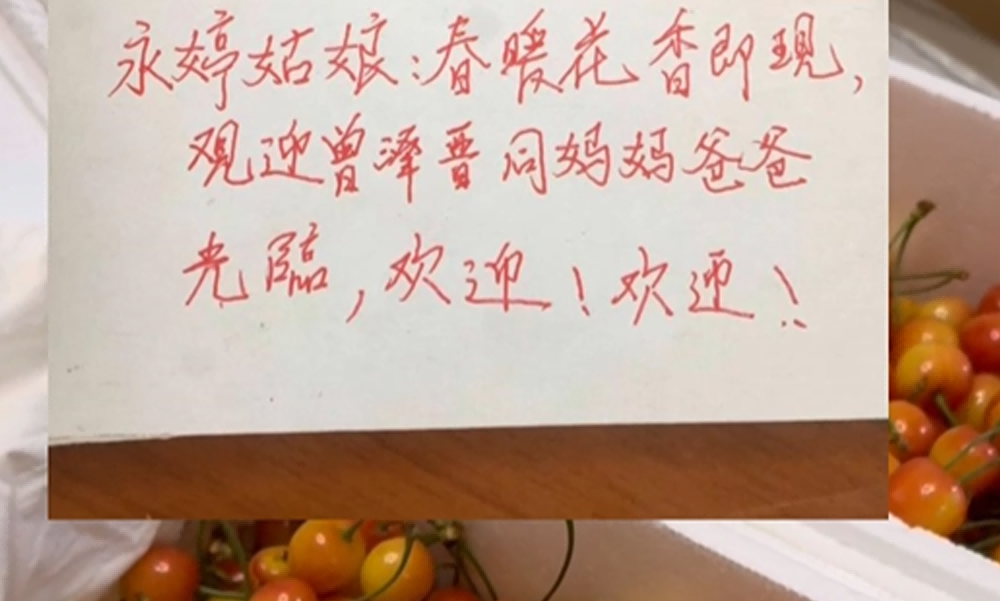 永婷姑娘:春暖花香即現,
观迎曾泽晋同妈妈爸爸
光臨,欢迎!欢迎!